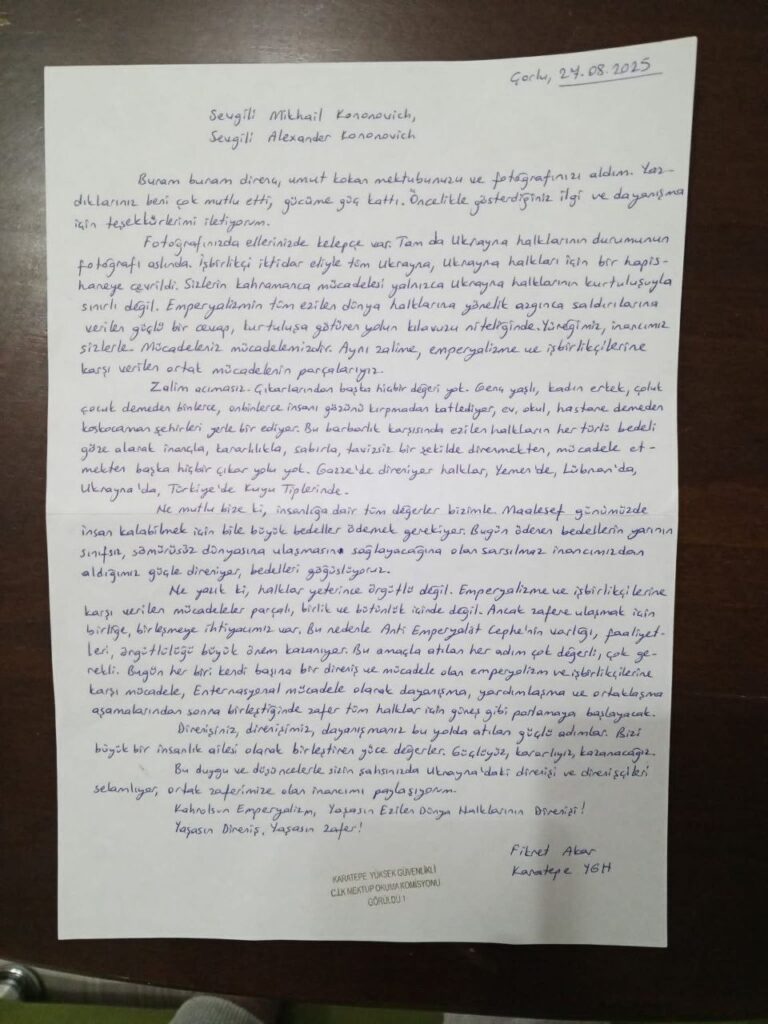 Çorlu, 27.08.2025
Sevgili Mikhail Kononovich,
Sevgili Alexander Kononovich
Buram buram direnç, umut kokan mektubunuzu ve fotoğrafınızı aldım. Yaz-
dıklarınız beni çok mutlu etti, gücüme güç kattı. Öncelikle gösterdiğiniz ilgi ve dayanışma
için teşekkürlerimi iletiyorum.
Fotoğrafınızda ellerinizde kelepçe var. Tam da Ukrayna halklarının durumunun
fotoğrafı aslında. İşbirlikçi iktidar eliyle tüm Ukrayna, Ukrayna halkları için bir hapis-
haneye çevrildi. Sizlerin kahramanca mücadelesi yalnızca Ukrayna halklarının kurtuluşuyla
sınırlı değil. Emperyalizmin tüm ezilen dünya halklarına yönelik azgınca saldırılarına
verilen güçlü bir cevap, kurtuluşa götüren yolun kılavuzu niteliğinde. Yüreğimiz, inancımız
sizlerle. Mücadeleniz mücadelemizdir. Aynı zalime, emperyalizme ve işbirlikçilerine
karşı verilen ortak mücadelenin parçalarıyız.
Zalim acımasız. Çıkarlarından başka hiçbir değeri yok. Genç yaşlı, kadın erkek, çoluk
çocuk demeden binlerce, onbinlerce insanı gözünü kırpmadan katlediyor, ev, okul, hastane demeden
koskocaman şehirleri yerle bir ediyor. Bu barbarlık karşısında ezilen halkların her türlü bedeli
göze alarak inançla, kararlılıkla, sabırla, tavizsiz bir şekilde direnmekten, mücadele et-
mekten başka hiçbir çıkar yolu yok. Gazze'de direniyor halklar, Yemen'de, Lübnan'da,
Ukrayna'da, Türkiye'de Kuyu Tiplerinde.
Ne mutlu bize ki, insanlığa dair tüm değerler bizimle. Maalesef günümüzde
insan kalabilmek için bile büyük bedeller ödemek gerekiyor. Bugün ödenen bedellerin yarının
sınıfsız, sömürüsüz dünyasına ulaşmasını sağlayacağına olan sarsılmaz inancımızdan
aldığımız güçle direniyor, bedelleri göğüslüyoruz.
Ne yazık ki, halklar yeterince örgütlü değil. Emperyalizme ve işbirlikçilerine
karşı verilen mücadeleler parçalı, birlik ve bütünlük içinde değil. Ancak zafere ulaşmak için
birliğe, birleşmeye ihtiyacımız var. Bu nedenle Anti Emperyalist Cephe'nin varlığı, faaliyet-
leri, örgütlülüğü büyük önem kazanıyor. Bu amaçla atılan her adım çok değerli, çok ge-
rekli. Bugün her biri kendi başına bir direniş ve mücadele olan emperyalizm ve işbirlikçilerine
karşı mücadele, Enternasyonal mücadele olarak dayanışma, yardımlaşma ve ortaklaşma
aşamalarından sonra birleştiğinde zafer tüm halklar için güneş gibi parlamaya başlayacak.
Direnişiniz, direnişimiz, dayanışmanız bu yolda atılan güçlü adımlar. Bizi
büyük bir insanlık ailesi olarak birleştiren yüce değerler. Güçlüyüz, kararlıyız, kazanacağız.
Bu duygu ve düşüncelerle sizin şahsınızda Ukrayna'daki direnişi ve direnişçileri
selamlıyor, ortak zaferimize olan inancımı paylaşıyorum.
Kahrolsun Emperyalizm, Yaşasın Ezilen Dünya Halklarının Direnişi!
Yaşasın Direniş, Yaşasın Zafer!
Fikret Akar
Karatepe YGH
KARATEPE YÜKSEK GÜVENLİKLİ
C.İ.K MEKTUP OKUMA KOMİSYONU
GÖRÜLDÜ 1